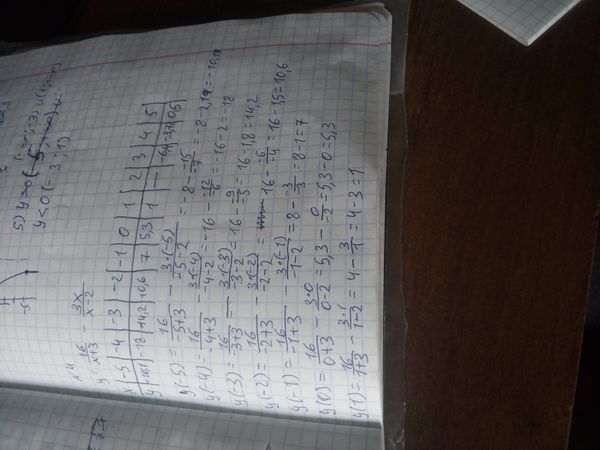 5) y>0
y<0 (-3; 1)
-5
x4
y = 16/x+3 - 3x/x-2
x | -5 | -4 | -3 | -2 | -1 | 0 | 1 | 2 | 3 | 4 | 5
y | -10,1 | -18 | 14,2 | 10,6 | 7 | 5,3 | 1 | — | -6,4 | -3,7 | 0,5
y(-5) = 16/-5+3 - 3·(-5)/-5-2 = -8 - -15/-7 = -8-2,1 = -10,1
y(-4) = 16/-4+3 - 3·(-4)/-4-2 = -16 - -12/-6 = -16-2 = -18
y(-3) = 16/-3+3 - 3·(-3)/-3-2 = 16 - -9/-5 = 16-1,8 = 14,2
y(-2) = 16/-2+3 - 3·(-2)/-2-2 = 16 - -6/-4 = 16-1,5 = 10,6
y(-1) = 16/-1+3 - 3·(-1)/-1-2 = 8 - -3/-3 = 8-1 = 7
y(0) = 16/0+3 - 3·0/0-2 = 5,3 - 0/-2 = 5,3-0 = 5,3
y(1) = 16/1+3 - 3·1/1-2 = 4 - 3/1 = 4-3 = 1